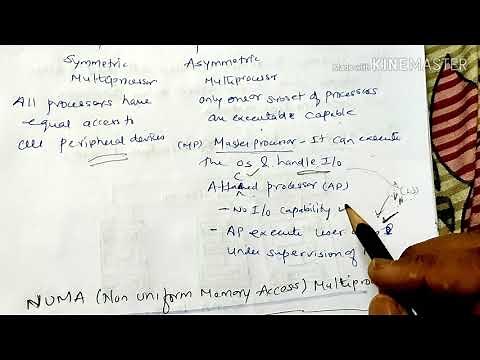 Symmetric Multiprocessor
All processors have
equal access to
all peripheral devices
Asymmetric
Multiprocessor
only one or subset of processors
are executable capable
(MP) Master processor - It can execute
the OS & handle I/O
Attached processor (AP)
- No I/O capability
- AP execute user
under supervision of
NUMA (Non uniform Memory Access)
Made with KINEMASTER